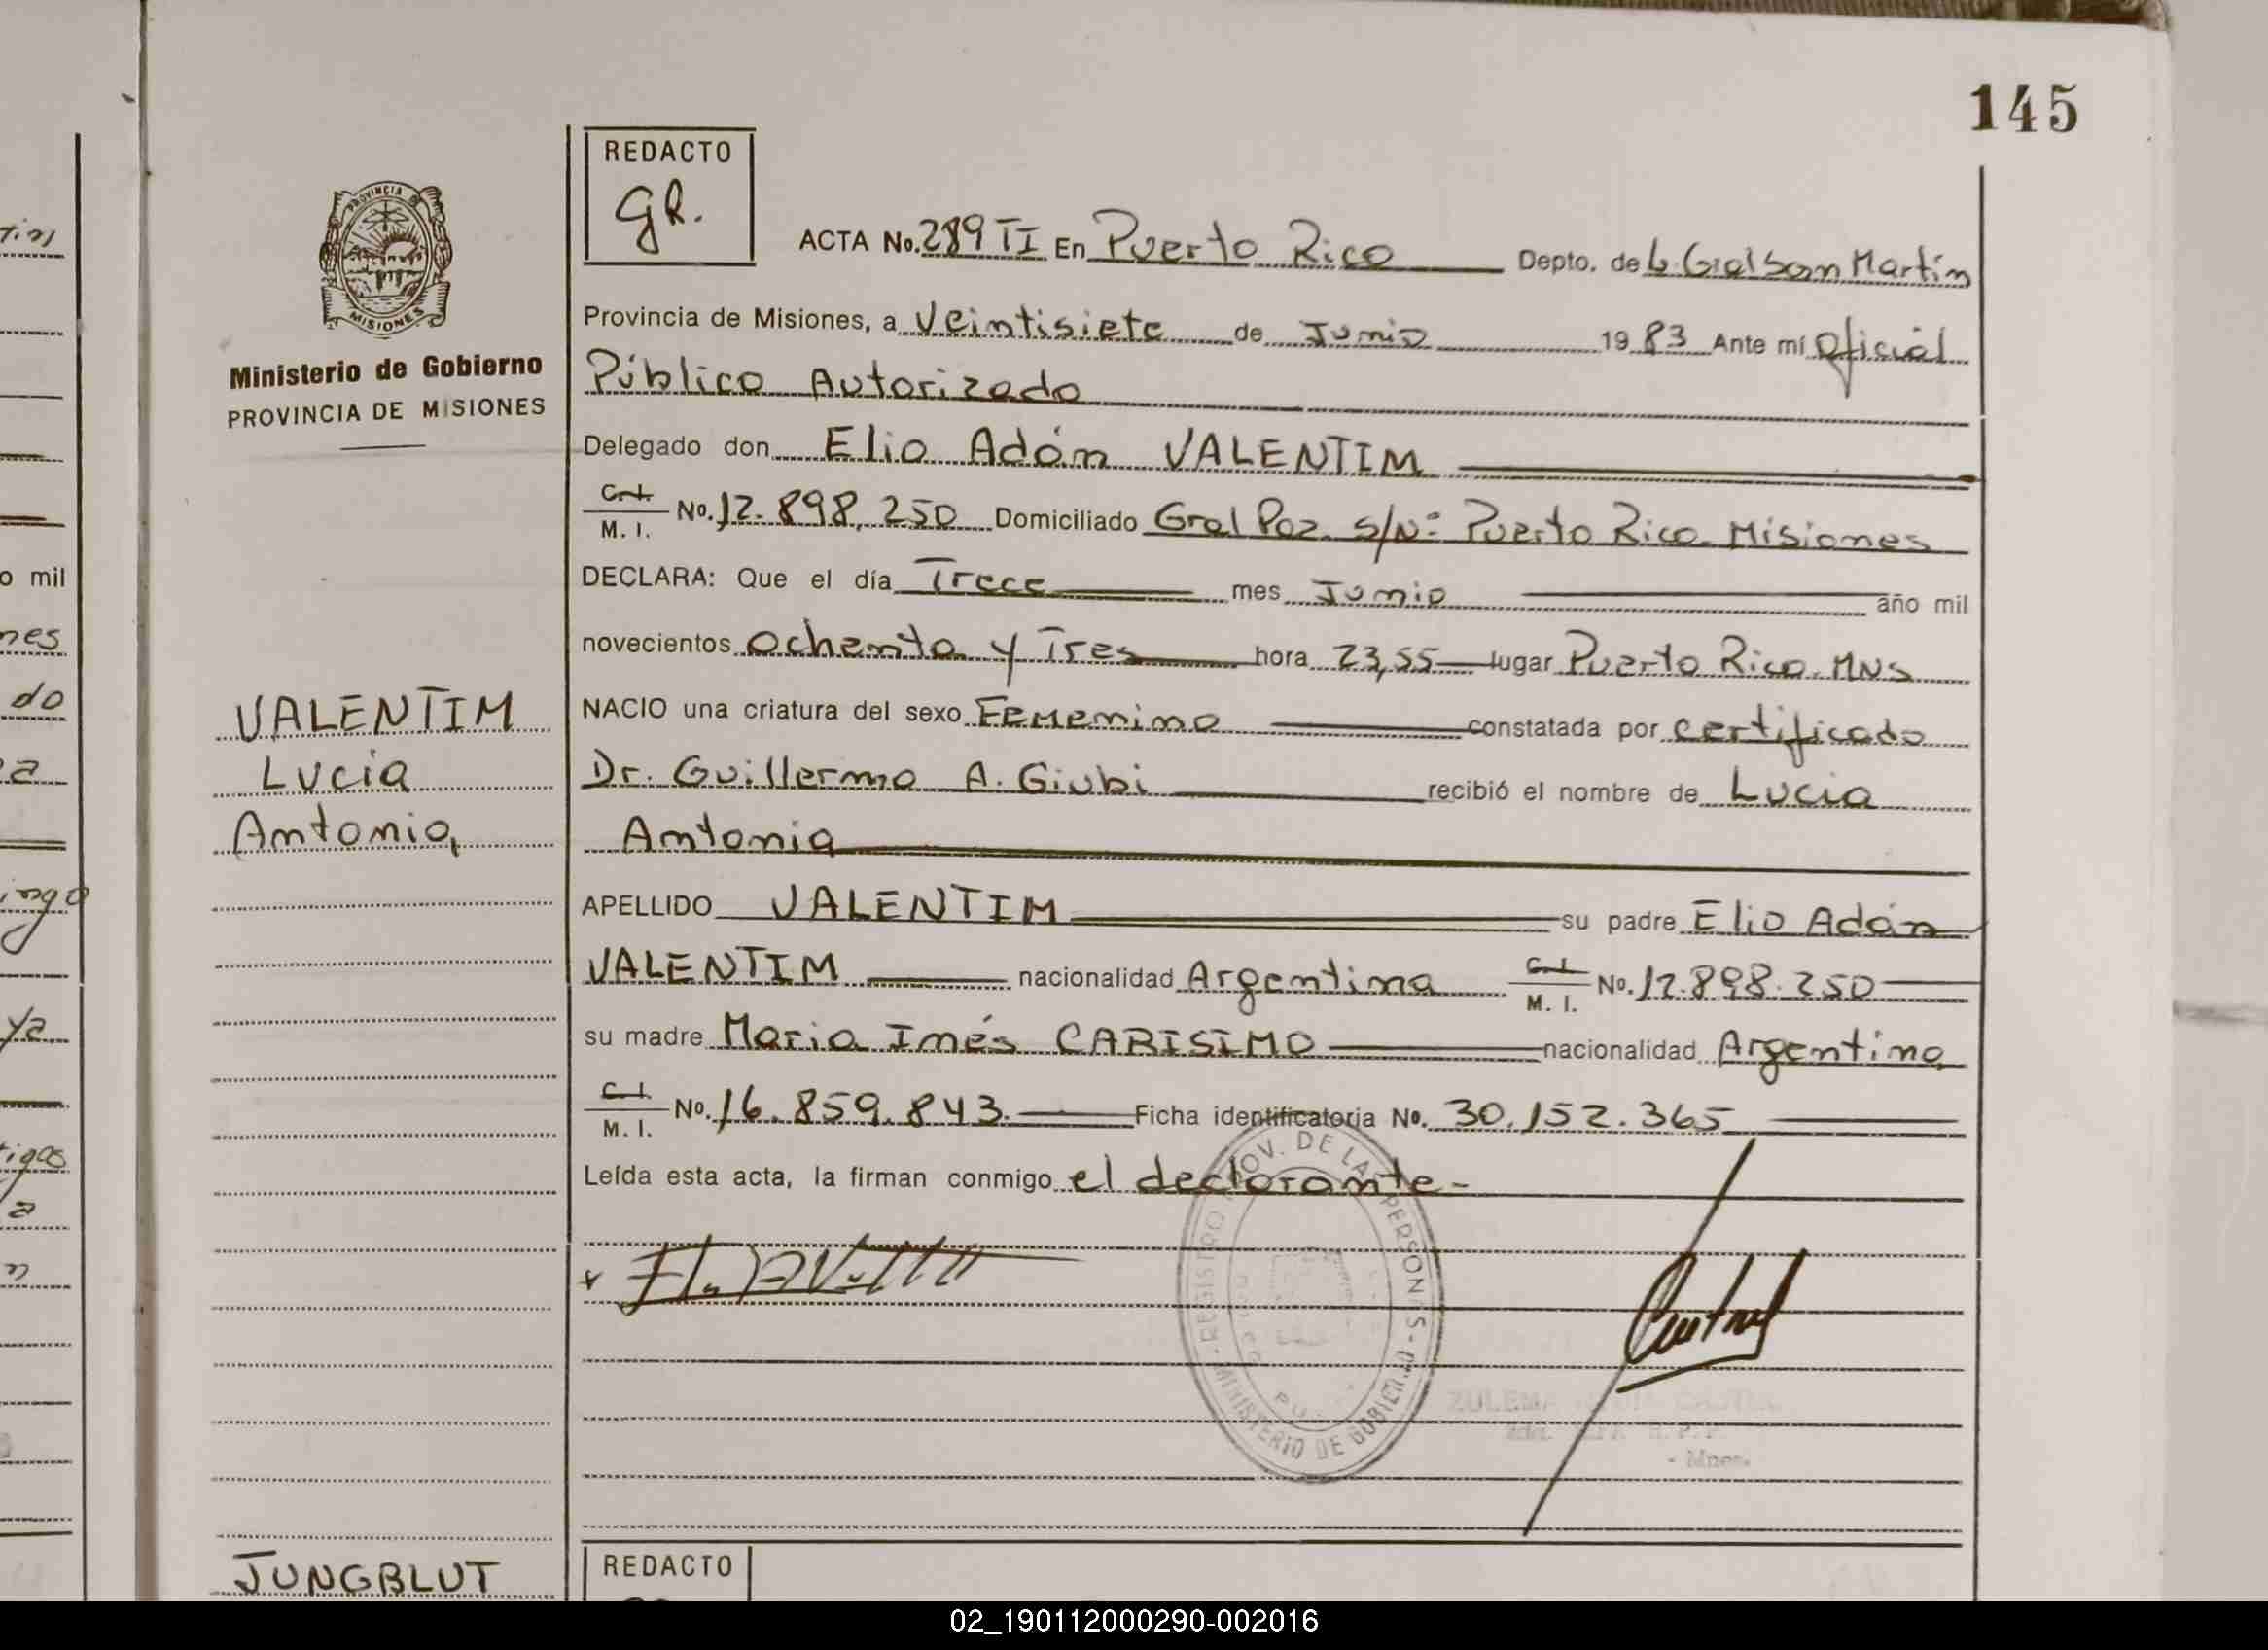 145
REDACTO
gR.
ACTA No. 289 TI En Puerto Rico Depto. de L. Gral San Martín
Provincia de Misiones, a Veintisiete de Junio 1983 Ante mí Oficial
Público Autorizado
Delegado don Elio Adán VALENTIM
C.I. M. I. No. 12.898.250 Domiciliado Gral Paz. S/Nº Puerto Rico. Misiones
DECLARA: Que el día Trece mes Junio año mil
novecientos Ochenta y Tres hora 23,55 lugar Puerto Rico. MNS
NACIO una criatura del sexo Femenino constatada por certificado
Dr. Guillermo A. Giubi recibió el nombre de Lucia
Antonia
APELLIDO VALENTIM su padre Elio Adán
VALENTIM nacionalidad Argentina C.I. M. I. No. 12.898.250
su madre Maria Inés CARISIMO nacionalidad Argentina
C.I. M. I. No. 16.859.843. Ficha identificatoria No. 30.152.365
Leída esta acta, la firman conmigo el declarante-
PROVINCIA DE
MISIONES
Ministerio de Gobierno
PROVINCIA DE MISIONES
VALENTIM
Lucía
Antonia
JUNGBLUT
REDACTO
REGISTRO PROV. DE LAS PERSONAS
MINISTERIO DE GOBIERNO
ZULEMA
- Mnes.
o mil
nes
do
02_190112000290-002016